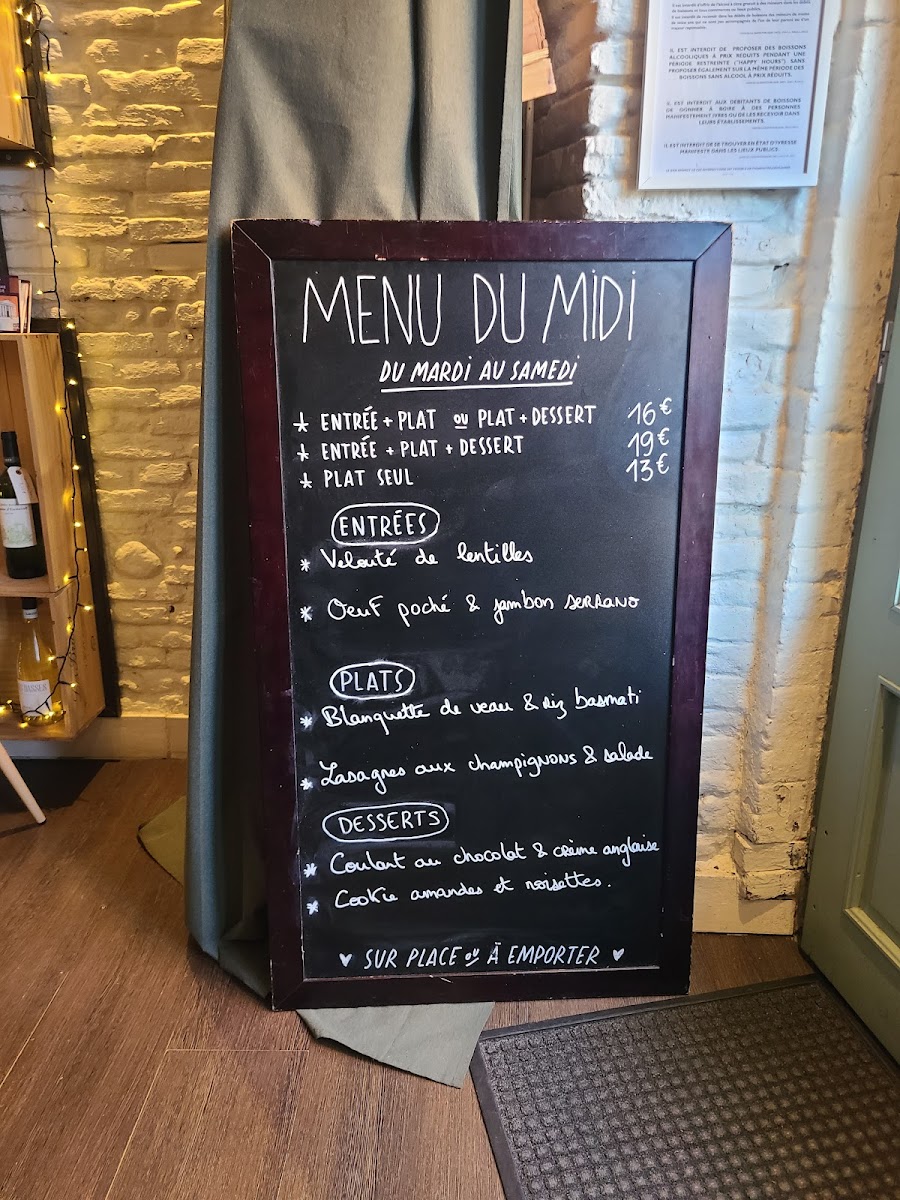 IL EST INTERDIT DE PROPOSER DES BOISSONS
ALCOOLIQUES À PRIX REDUITS PENDANT UNE
PÉRIODE RESTREINTE ("HAPPY HOURS") SANS
PROPOSER ÉGALEMENT SUR LA MÊME PÉRIODE DES
BOISSONS SANS ALCOOL À PRIX RÉDUITS.
IL EST INTERDIT AUX DEBITANTS DE BOISSONS
DE DONNER À BOIRE À DES PERSONNES
MANIFESTEMENT IVRES OU DE LES RECEVOIR DANS
LEURS ÉTABLISSEMENTS.
IL EST INTERDIT DE SE TROUVER EN ÉTAT D'IVRESSE
MANIFESTE DANS LES LIEUX PUBLICS.
MENU DU MIDI
DU MARDI AU SAMEDI
* ENTRÉE + PLAT OU PLAT + DESSERT 16€
* ENTRÉE + PLAT + DESSERT 19€
* PLAT SEUL 13€
ENTRÉES
* Velouté de lentilles
* Oeuf poché & jambon SERRANO
PLATS
* Blanquette de veau & riz basmati
* Lasagnes aux champignons & salade
DESSERTS
* Coulant au chocolat & crème anglaise
* Cookie amandes et noisettes.
♥ SUR PLACE OU À EMPORTER ♥